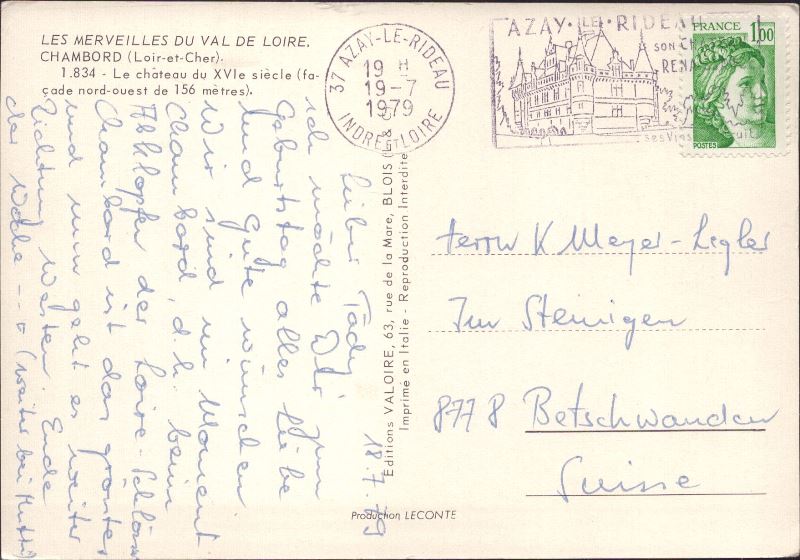 LES MERVEILLES DU VAL DE LOIRE.
CHAMBORD (Loir-et-Cher).
1.834 - Le château du XVIe siècle (fa-
çade nord-ouest de 156 mètres).
37 AZAY-LE-RIDEAU
19 H
19-7
1979
INDRE ET LOIRE
AZAY-LE-RIDEAU
SON CH
RENA
ses Vins
FRANCE
1,00
POSTES
18.7.79
Lieber
ich möchte Dir zum
Geburtstag alles Liebe
und Gute wünschen
Wir sind im Moment
Chambord, d.h. beim
Abklopfen der Loire-Schlösser
Chambord ist das grösste
und nun geht es weiter
Richtung Westen. Ende
der Woche --- (weiter bei Mutti)
Editions VALOIRE, 63, rue de la Mare, BLOIS (L &
Imprimé en Italie - Reproduction Interdite
Production LECONTE
Herrn K Meyer-Legler
Im Steinigen
8778 Betschwanden
Suisse